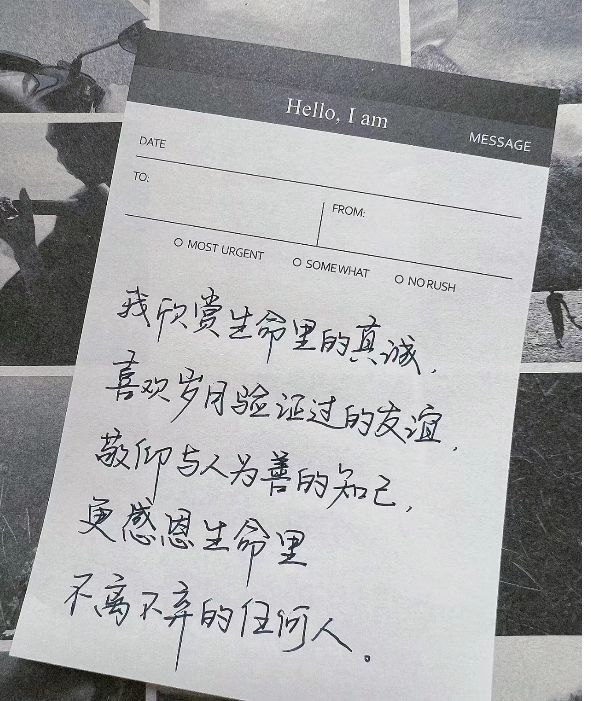 Hello, I am
MESSAGE
DATE
TO:
FROM:
MOST URGENT
SOMEWHAT
NO RUSH
我欣赏生命里的真诚，
喜欢岁月验证过的友谊，
敬仰与人为善的知己，
更感恩生命里
不离不弃的任何人。